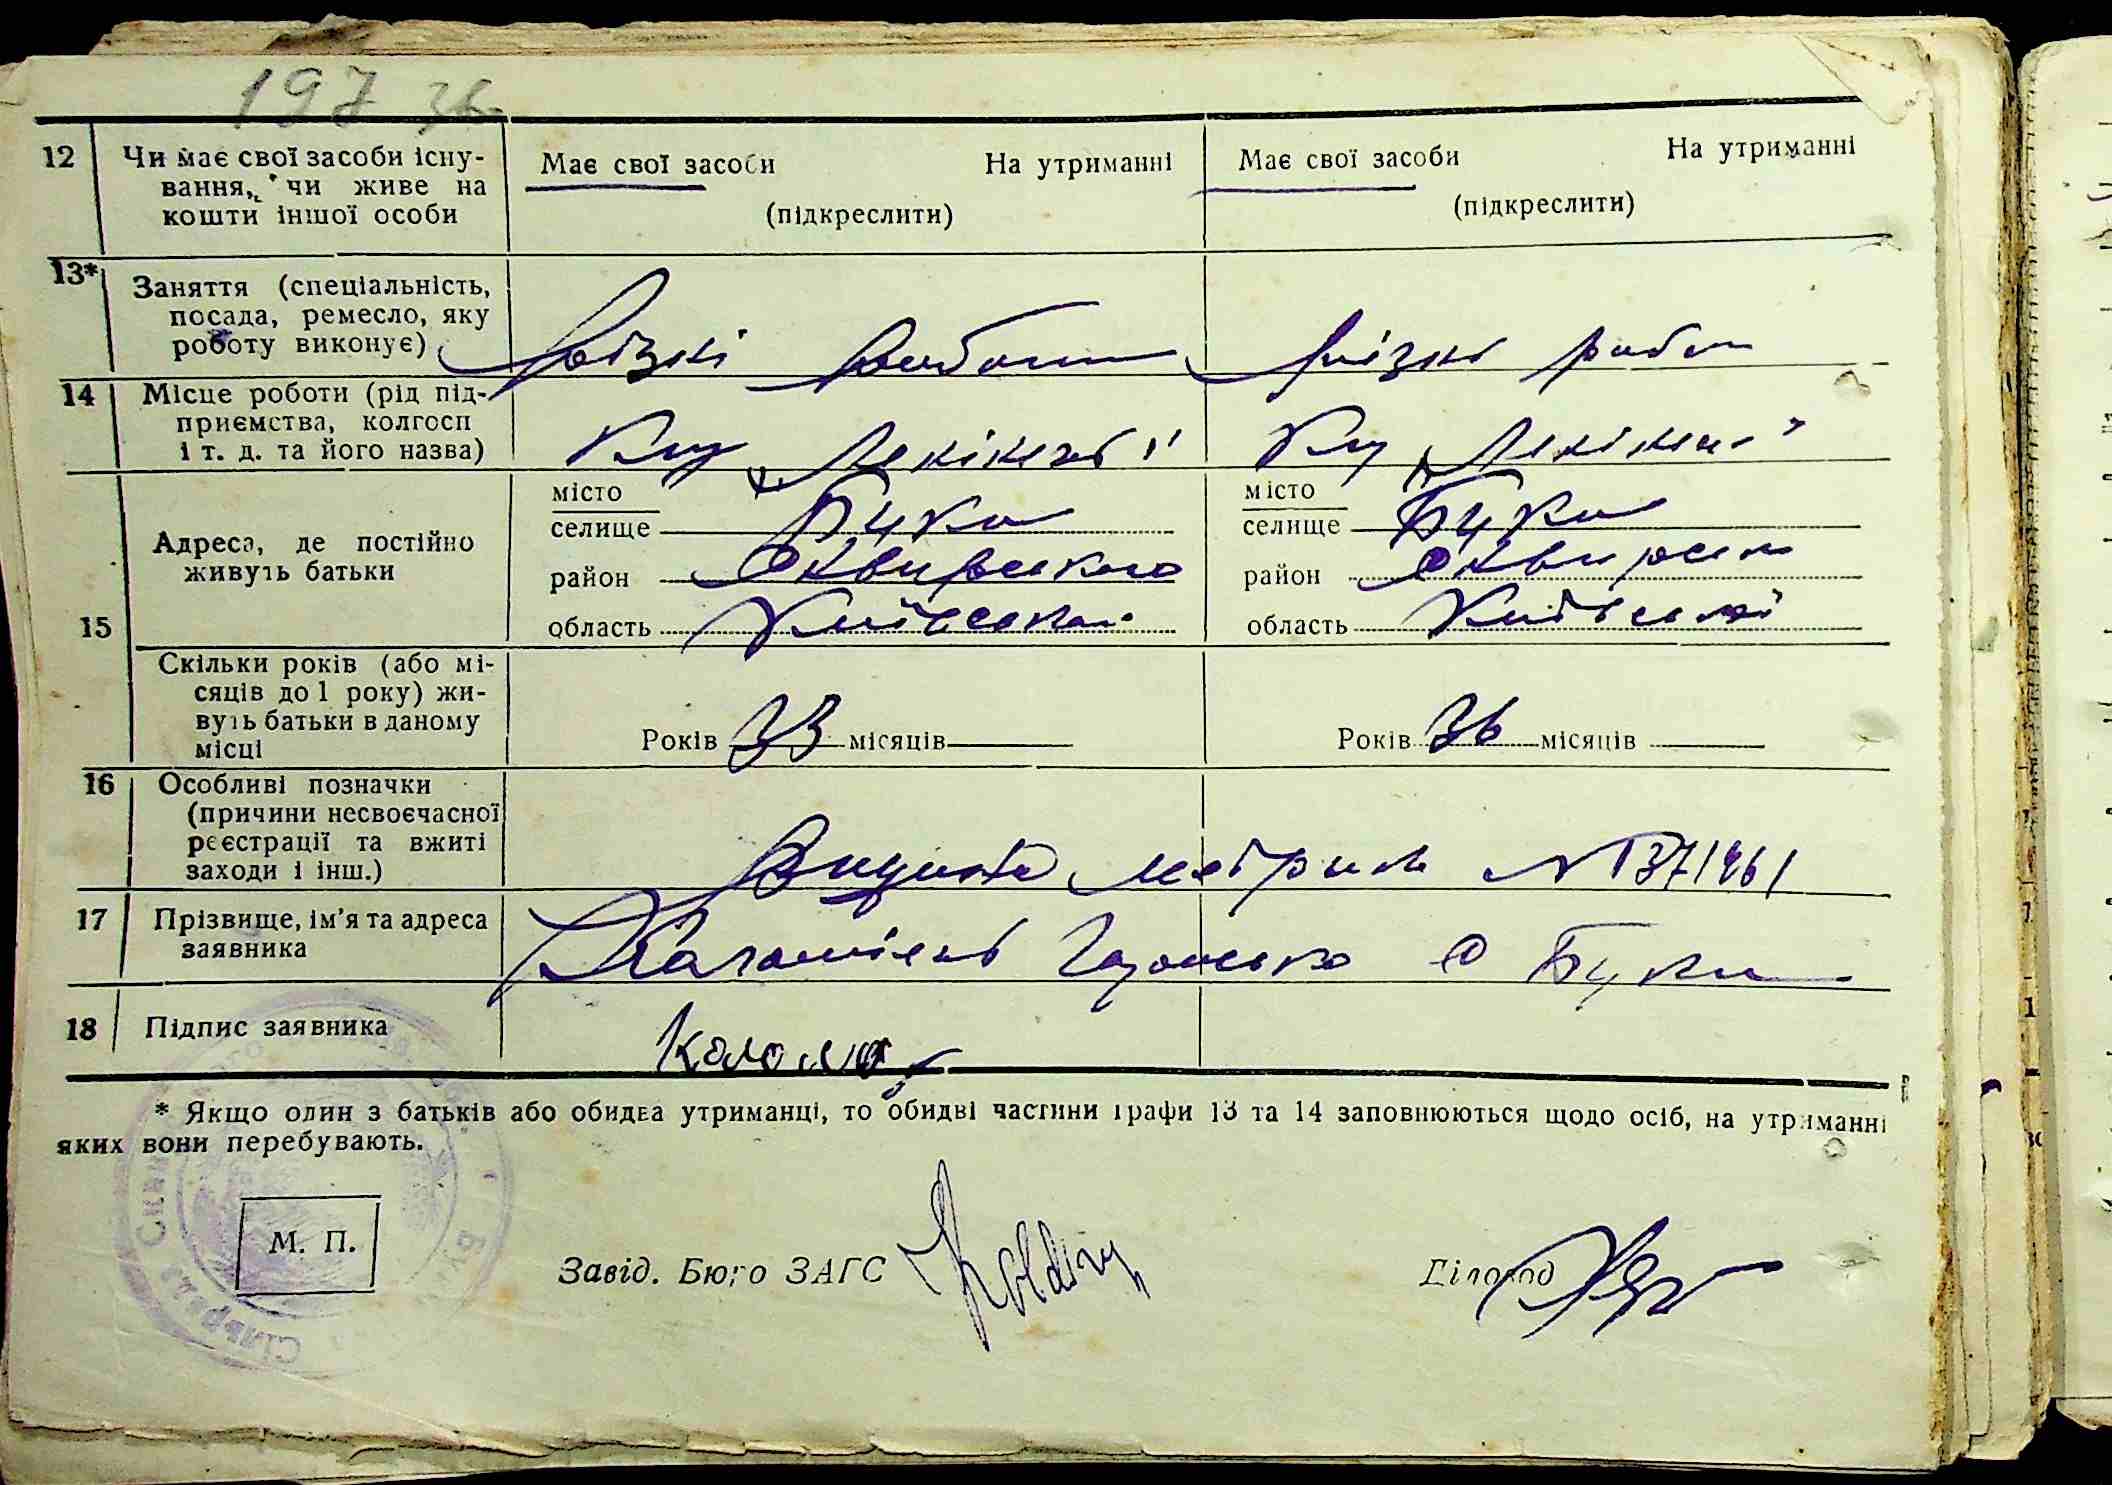 197 зв.
12 Чи має свої засоби існу-
вання, чи живе на
кошти іншої особи
Має свої засоби На утриманні
(підкреслити)
Має свої засоби На утриманні
(підкреслити)
13* Заняття (спеціальність,
посада, ремесло, яку
роботу виконує)
різні роботи
різні робот
14 Місце роботи (рід під-
приємства, колгосп
і т. д. та його назва)
К-п
К-п
15 Адреса, де постійно
живуть батьки
місто
селище Буки
район Сквирського
область Київської
місто
селище Буки
район Сквирськ
область Київської
Скільки років (або мі-
сяців до 1 року) жи-
вуть батьки в даному
місці
Років 33 місяців
Років 36 місяців
16 Особливі позначки
(причини несвоєчасної
реєстрації та вжиті
заходи і інш.)
Видана метрика №
17 Прізвище, ім'я та адреса
заявника
Коломієць с Буки
18 Підпис заявника
* Якщо один з батьків або обидва утриманці, то обидві частини графи 13 та 14 заповнюються щодо осіб, на утриманні
яких вони перебувають.
М. П.
Завід. Бюро ЗАГС
Діловод
Сільрада